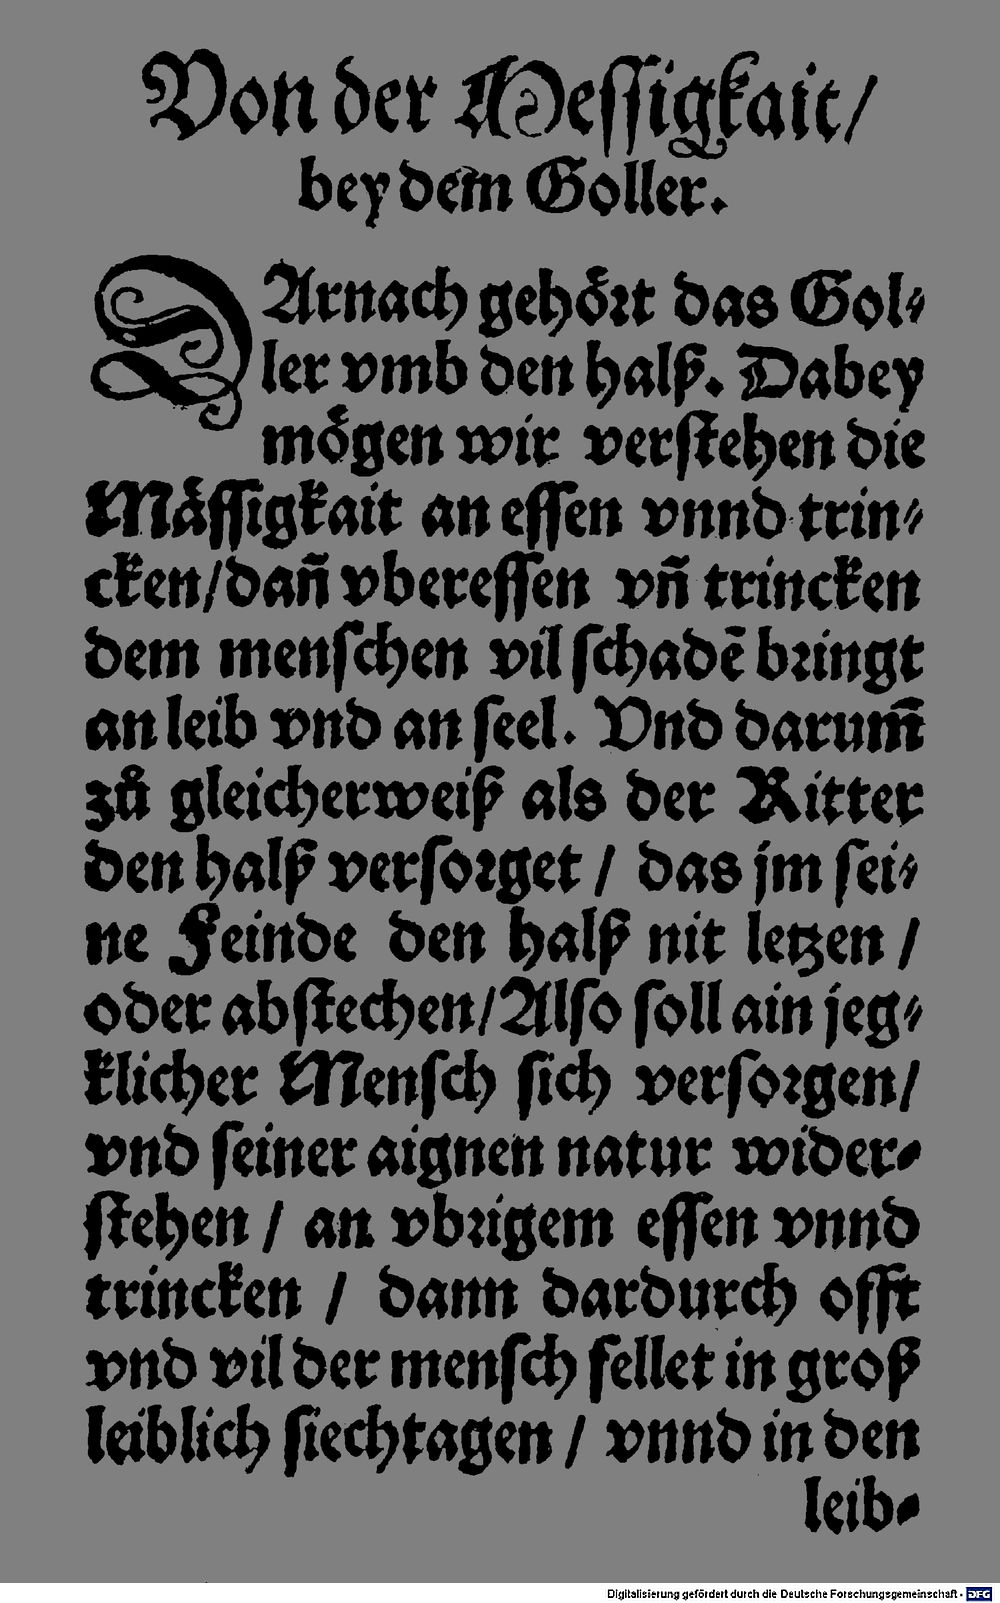 Von der Messigkait/
bey dem Goller.
DArnach gehoͤrt das Gol⸗
ler vmb den halß. Dabey
moͤgen wir verstehen die
Maͤssigkait an essen vnnd trin⸗
cken/dañ vberessen vñ trincken
dem menschen vil schadẽ bringt
an leib vnd an seel. Vnd darum̃
zuͦ gleicherweiß als der Ritter
den halß versorget / das jm sei⸗
ne Feinde den halß nit letzen /
oder abstechen/Also soll ain jeg⸗
klicher Mensch sich versorgen/
vnd seiner aignen natur wider⸗
stehen / an vbrigem essen vnnd
trincken / dann dardurch offt
vnd vil der mensch fellet in groß
leiblich siechtagen / vnnd in den
leib⸗
Digitalisierung gefördert durch die Deutsche Forschungsgemeinschaft - DFG